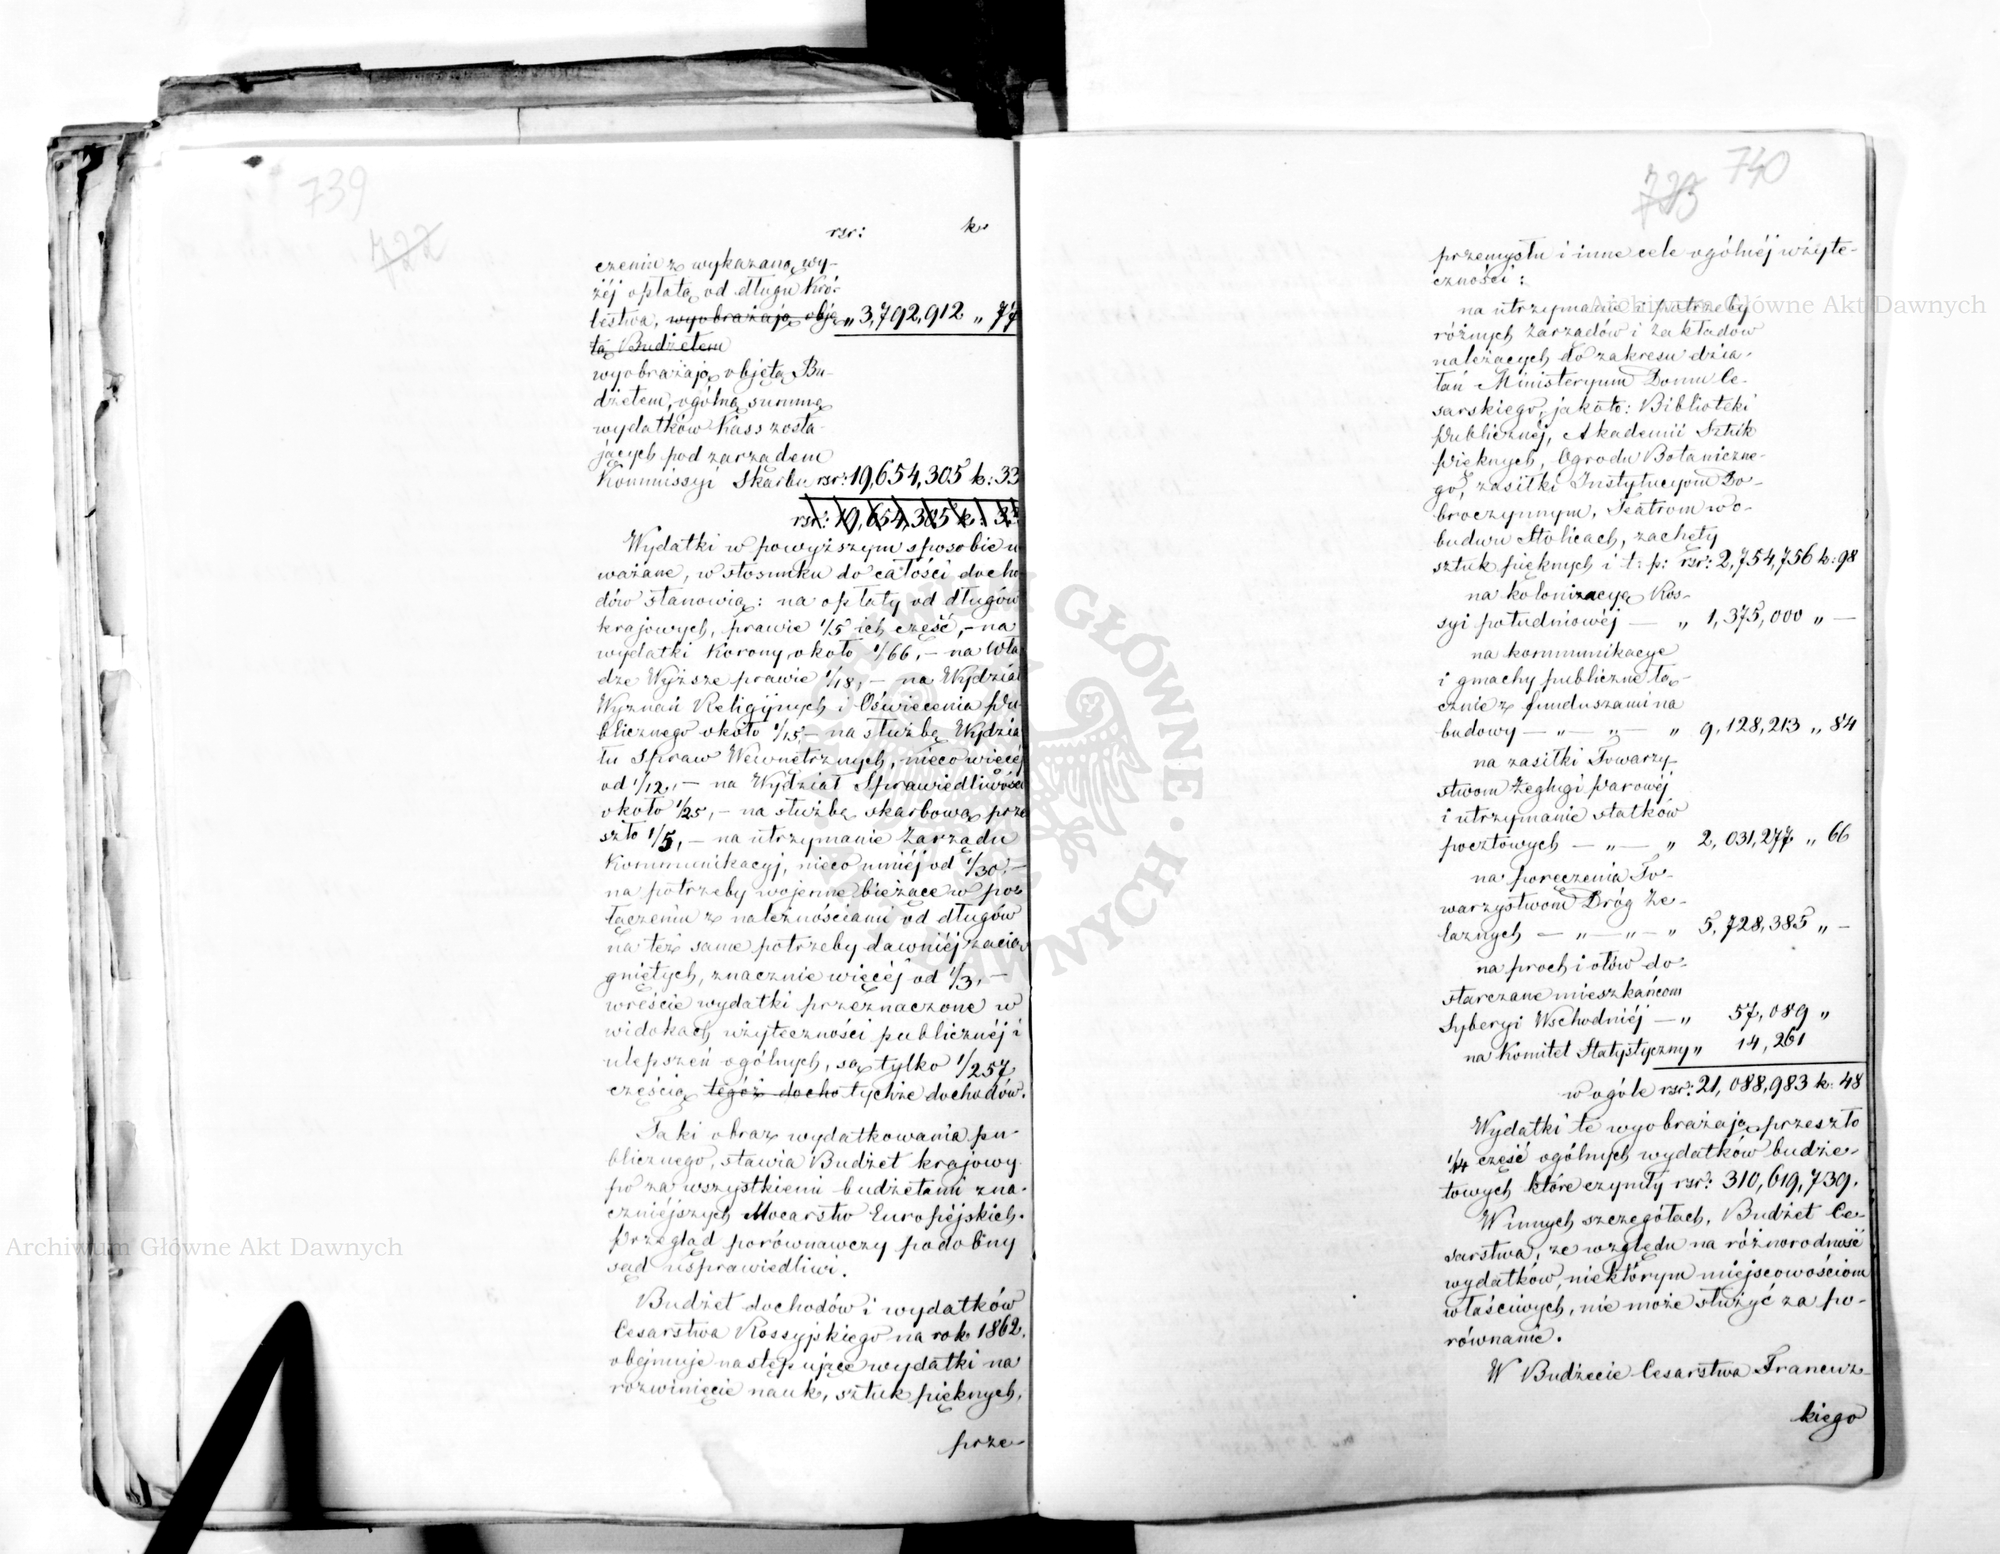 739
722
rsr: k.
czeniu z wykazaną wy-
żéj opłatą od długu Kró-
lestwa, wyobrażają obję „ 3,792,912 „ 77
tą Budżetem
wyobrażają objętą Bu-
dżetem, ogólną summę
wydatków Kass zosta-
jących pod zarządem
Kommissyi Skarbu rsr: 19,654,305 k: 33
rsr: 19,654,305 k: 33
Wydatki w powyższym sposobie u
ważane, w stosunku do całości docho
dów stanowią: na opłaty od długów
krajowych, prawie 1/5 ich część, – na
wydatki Korony około 1/66, – na Wła
dze Wyższe prawie 1/18, – na Wydział
Wyznań Religijnych i Oświecenia Pu-
blicznego około 1/15, – na służbę Wydzia
łu Spraw Wewnętrznych, nieco więcéj
od 1/12, – na Wydział Sprawiedliwości
około 1/25, – na służbę skarbową prze
szło 1/5, – na utrzymanie Zarządu
Kommunikacyj, nieco mniéj od 1/30, –
na potrzeby wojenne bieżące w po
łączeniu z należnościami od długów
na też same potrzeby dawniéj zacią
gniętych, znacznie więcéj od 1/3, –
wreście wydatki przeznaczone w
widokach użyteczności publicznéj i
ulepszeń ogólnych, są tylko 1/257
częścią tegóż docho tychże dochodów.
Taki obraz wydatkowania pu-
blicznego, stawia Budżet krajowy
po za wszystkiemi budżetami zna-
czniéjszych Mocarstw Européjskich.
Przegląd porównawczy podobny
sąd usprawiedliwi.
Budżet dochodów i wydatków
Cesarstwa Rossyjskiego na rok 1862.
obejmuje następujące wydatki na
rozwinięcie nauk, sztuk pięknych,
prze-
723 740
przemysłu i inne cele ogólnéj użyte-
czności:
na utrzymanie i potrzeby
różnych Zarządów i Zakładów
należących do zakresu dzia-
łań Ministeryum Domu Ce-
sarskiego, jakoto: Biblioteki
Publicznéj, Akademii Sztuk
Pięknych, Ogrodu Botaniczne-
go, zasiłki Instytucyom Do-
broczynnym, Teatrom w o-
budwu Stolicach, zachęty
sztuk pięknych i t: p: rsr: 2,754,756 k: 98
na kolonizacyą Ros-
syi południowéj — „ 1,375,000 „ —
na kommunikacye
i gmachy publiczne łą-
cznie z funduszami na
budowy — „ — „ — „ 9,128,213 „ 84
na zasiłki Towarzy-
stwom Żeglugi Parowéj
i utrzymanie statków
pocztowych — „ — „ 2,031,277 „ 66
na poręczenia To-
warzystwom Dróg Że-
laznych — „ — „ — „ 5,728,385 „ —
na proch i ołów do-
starczane mieszkańcom
Syberyi Wschodniéj — „ 57,089 „
na Komitet Statystyczny „ 14,261
w ogóle rsr: 21,088,983 k: 48
Wydatki te wyobrażają przeszło
1/14 część ogólnych wydatków budże-
towych które czyniły rsr: 310,619,739.
W innych szczegółach, Budżet Ce-
sarstwa, ze względu na różnorodność
wydatków, niektórym miejscowościom
właściwych, nie może służyć za po-
równanie.
W Budżecie Cesarstwa Francuz-
kiego
Archiwum Główne Akt Dawnych
Archiwum Główne Akt Dawnych